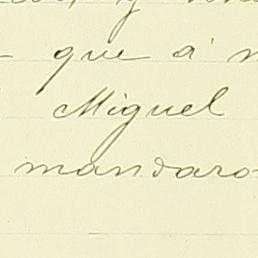 que á
Miguel
mandaro